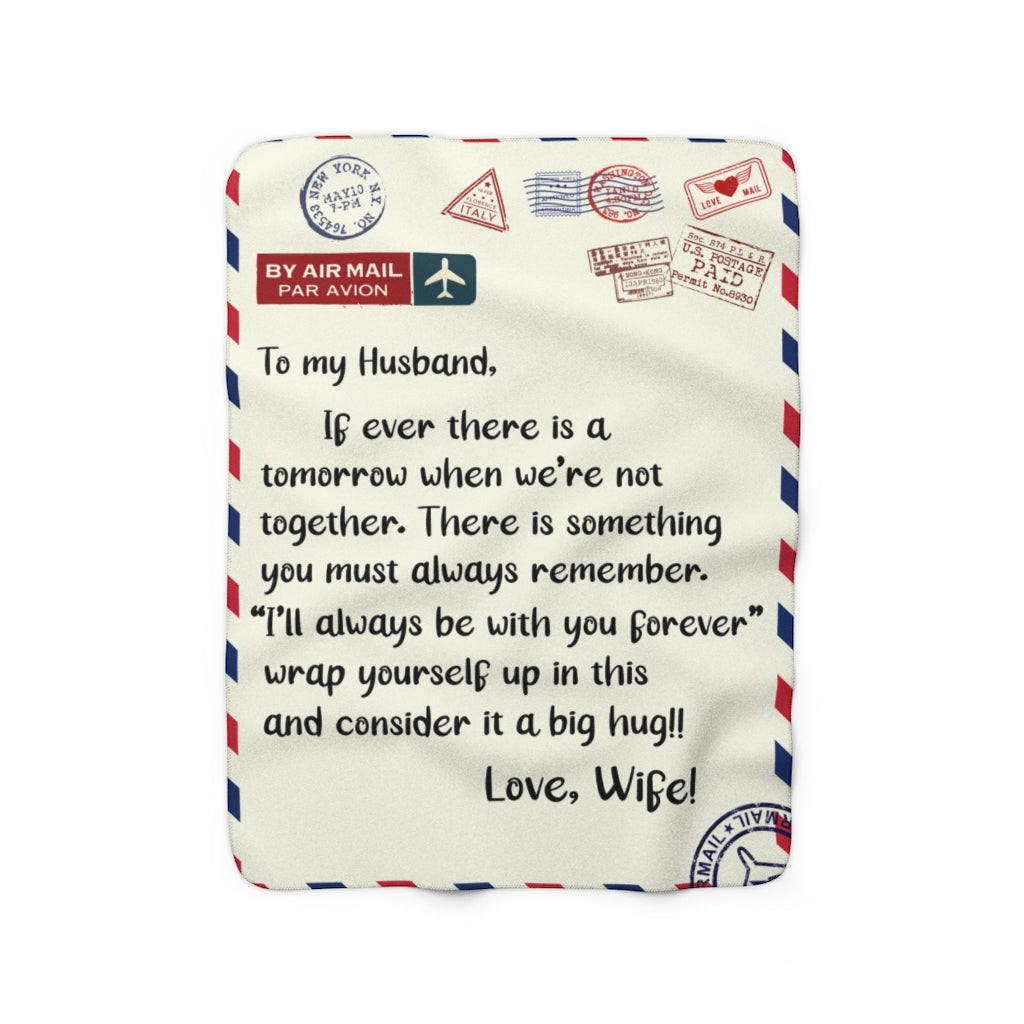 NEW YORK N.Y. NO. 764533
MAY10
7-PM
FLORENCE
ITALY
WASHINGTON
LOVE MAIL
BY AIR MAIL
PAR AVION
HONG-KONG
Sec. 574 P.L & R.
U.S. POSTAGE
PAID
Permit No.8930
To my Husband,
If ever there is a
tomorrow when we're not
together. There is something
you must always remember.
"I'll always be with you forever"
wrap yourself up in this
and consider it a big hug!!
Love, Wife!